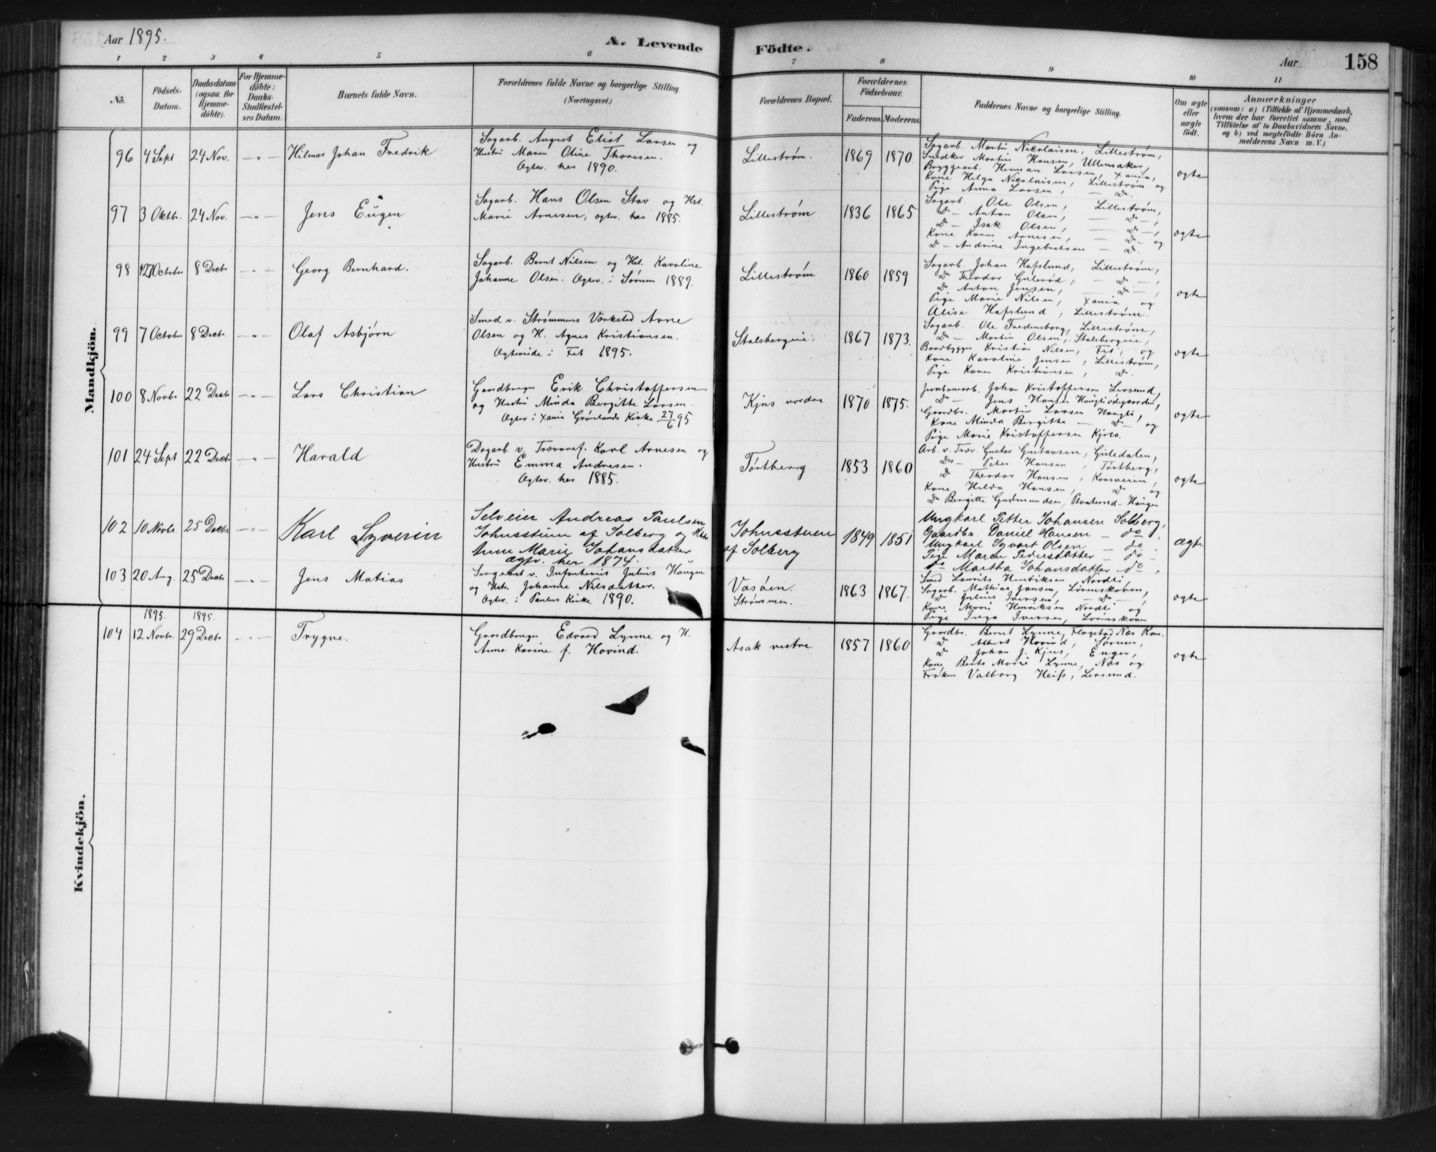 Aar 1895.
A. Levende Födte.
Aar
158
1 2 3 4 5 6 7 8 9 10 11
No.
Födsels-Datum.
Daabsdatum (ogsaa for Hjemme-döbte).
For Hjemme-döbte: Daabs-Stadfæstel-ses Datum.
Barnets fulde Navn.
Forældrenes fulde Navne og borgerlige Stilling (Næringsvei.)
Forældrenes Bopæl.
Forældrenes Födselsaar.
Faderens. Moderens.
Faddernes Navne og borgerlige Stilling.
Om ægte eller uægte födt.
Anmærkninger
(saasom: a) i Tilfælde af Hjemmedaab, hvem der har forrettet samme, med Tilföielse af to Daabsvidners Navne, og b) ved uægtefödte Börn An-melderens Navn m. V.)
Mandkjön.
96 4 Sept 24 Nov. Hilmar Johan Fredrik
Sagarb. August Eliot Larsen og
Hustru Maren Oline Thoresen.
Ægtev. her 1890.
Lilleström. 1869 1870
Sagarb. Marti Nicolaisen, Lilleström,
Snedker Martin Hansen, Ullensaker,
Bryggearb. Herman Larsen, Xania,
Kone Helga Nicolaisen, Lilleström og
Pige Anna Larsen, — D.
ægte
97 3 Oktb. 24 Nov. Jens Eugen
Sagarb. Hans Olsen Stav og Hst.
Marie Arnesen, ægtev. her 1885.
Lilleström 1836 1865
Sagarb. Ole Olsen, Lilleström,
D — Anton Olsen, — D —,
D — Isak Olsen, — D —,
Kone Karen Arnesen, — D — og
D — Andrine Ingebretsen — D.
ægte
98 Octobr 8 Decb. Georg Bernhard.
Sagarb. Bernt Nilsen og Hst. Karoline
Johanne Olsen. Ægtev. i Sørum 1889.
Lilleström 1860 1859
Sagarb. Johan Hafslund, Lilleström,
D. Theodor Gulerød, — D —,
D. Anton Jensen, — D —,
Pige Marie Nilsen, Xania og
Alise Hafslund, Lilleström.
ægte
99 7 Octobr 8 Decb. Olaf Asbjørn
Smed v. Strømmens Værksted Arne
Olsen og H. Agnes Kristiansen.
Ægteviede i Fet 1895.
Stalsbergeie. 1867 1873.
Sagarb. Ole Fredensborg, Lilleström,
D — Martin Olsen, Stalsbergeie,
Baadbygger Kristian Nilsen, Fet, og
Kone Karoline Jensen, Lilleström,
Pige Karen Kristiansen, D.
ægte
100 8 Novbr. 22 Decb. Lars Christian
Gaardbruger Erik Christoffersen
og Hustru Minda Birgitte Larsen.
Ægtev. i Xania Grønlands Kirke 27/6 95
Kjus nordre 1870 1875.
Johan Kristoffersen Lersund,
D — Jens Hansen
Gaardbr. Martin Larsen Haugli,
Kone Minda Birgitte — D — og
Pige Marie Kristoffersen Kjus.
ægte
101 24 Sept 22 Decb. Harald
Dagarb. v. Karl Arnesen og
Hustru Emma Andresen.
Ægtev. her 1885.
Tørtberg 1853 1860
Arb. v. Gustav Gustavsen, Guledalen,
Do — Peter Hansen, Tørtberg,
D. Theodor Hansen,
Kone Hilda Hansen, D og
D. Birgitte Gudmundsen,
ægte
102 10 Novbr. 25 Decb. Karl Syverin
Selveier Andreas Paulsen
Johnsstuen af Solberg og
Anne Marie Johansdatter
ægtv. her 1874.
Johnsstuen af Solberg 1849 1851
Ungkarl Petter Johansen Solberg,
Gaardbr. Daniel Hansen — do.
Ungkarl Syvert Olsen — do
Pige Maren Pedersdatter — do —
do Martha Johansdatter do.
Ægte
103 20 Aug. 25 Decb. Jens Matias
Sergeant v. Infanteriet Julius Haugen
og Hst. Johanne Nilsdatter.
Ægtev. i Paulus Kirke 1890.
Vasøen Strømmen. 1863 1867.
Smed Laurits Henriksen Nordli
Sagarb. Mathias Jensen, Lørenskoven,
D. Julius Iversen, — D —,
Kone Marie Henriksen Nordli og
Pige Inga Iversen, Lørenskoven
ægte
1895. 1895.
104 12 Novbr. 29 Decb. Trygve.
Gaardbruger Edvard Lynne og H.
Anne Karine f. Hovind.
Asak vestre 1857 1860
Gaardbr. Bernt Lynne, Flagstad Næs Rom.
D. Albert Hovind, Sørum,
D. Johan J. Kjus, Enger,
Kone Berte Marie Lynne, Næs og
Frøken Valborg Heifs, Lersund.
ægte
Kvindekjön.